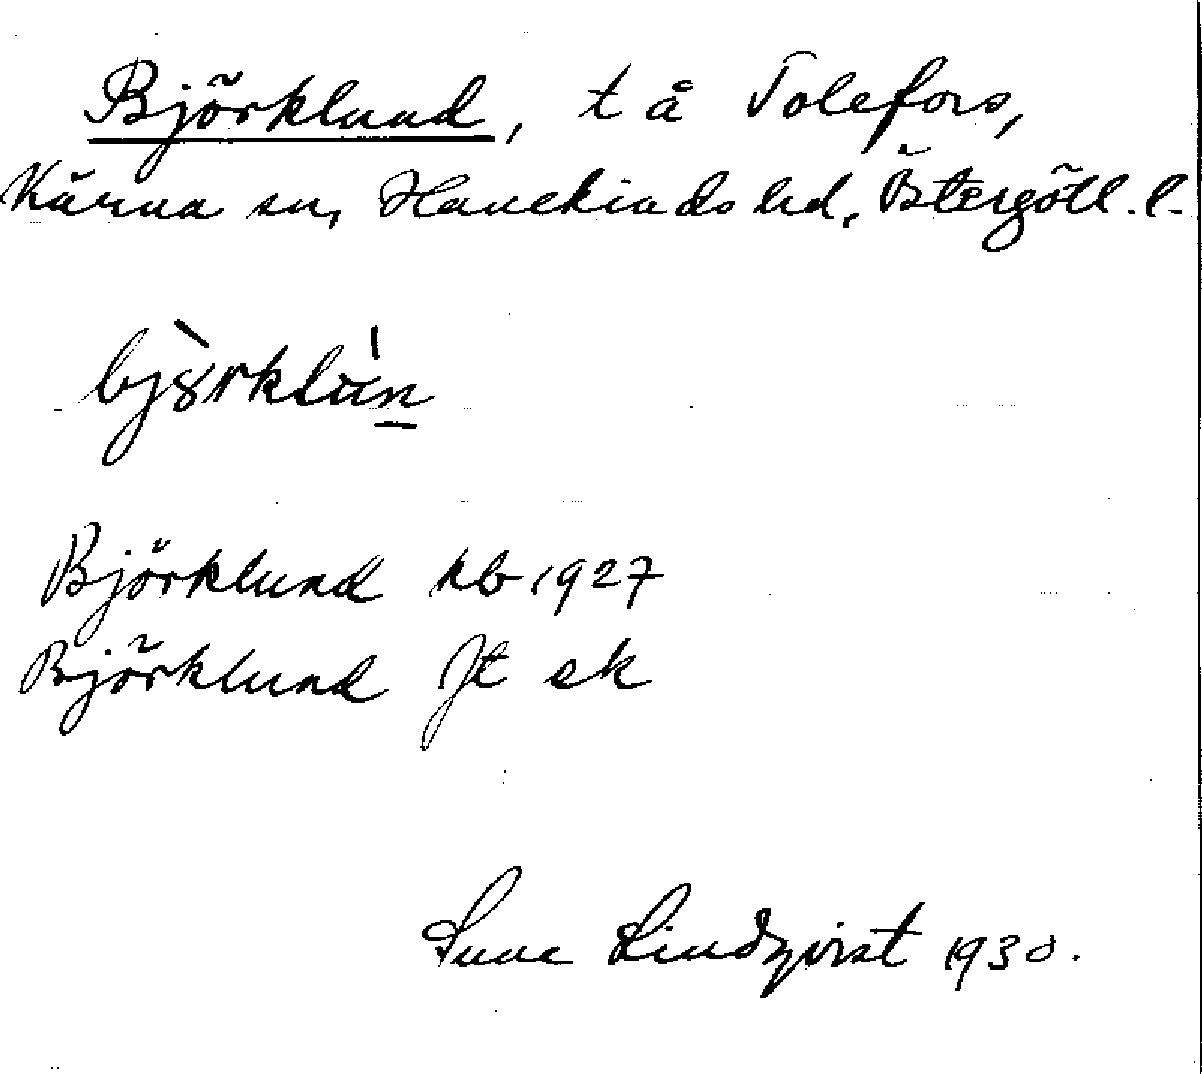 Björklund, t å Tolefors,
Kärna sn, Hanekinds hd, Östergötl. l.
bjòrklún
Björklund kb 1927
Björklund Jt ek
Sune Lindqvist 1930.